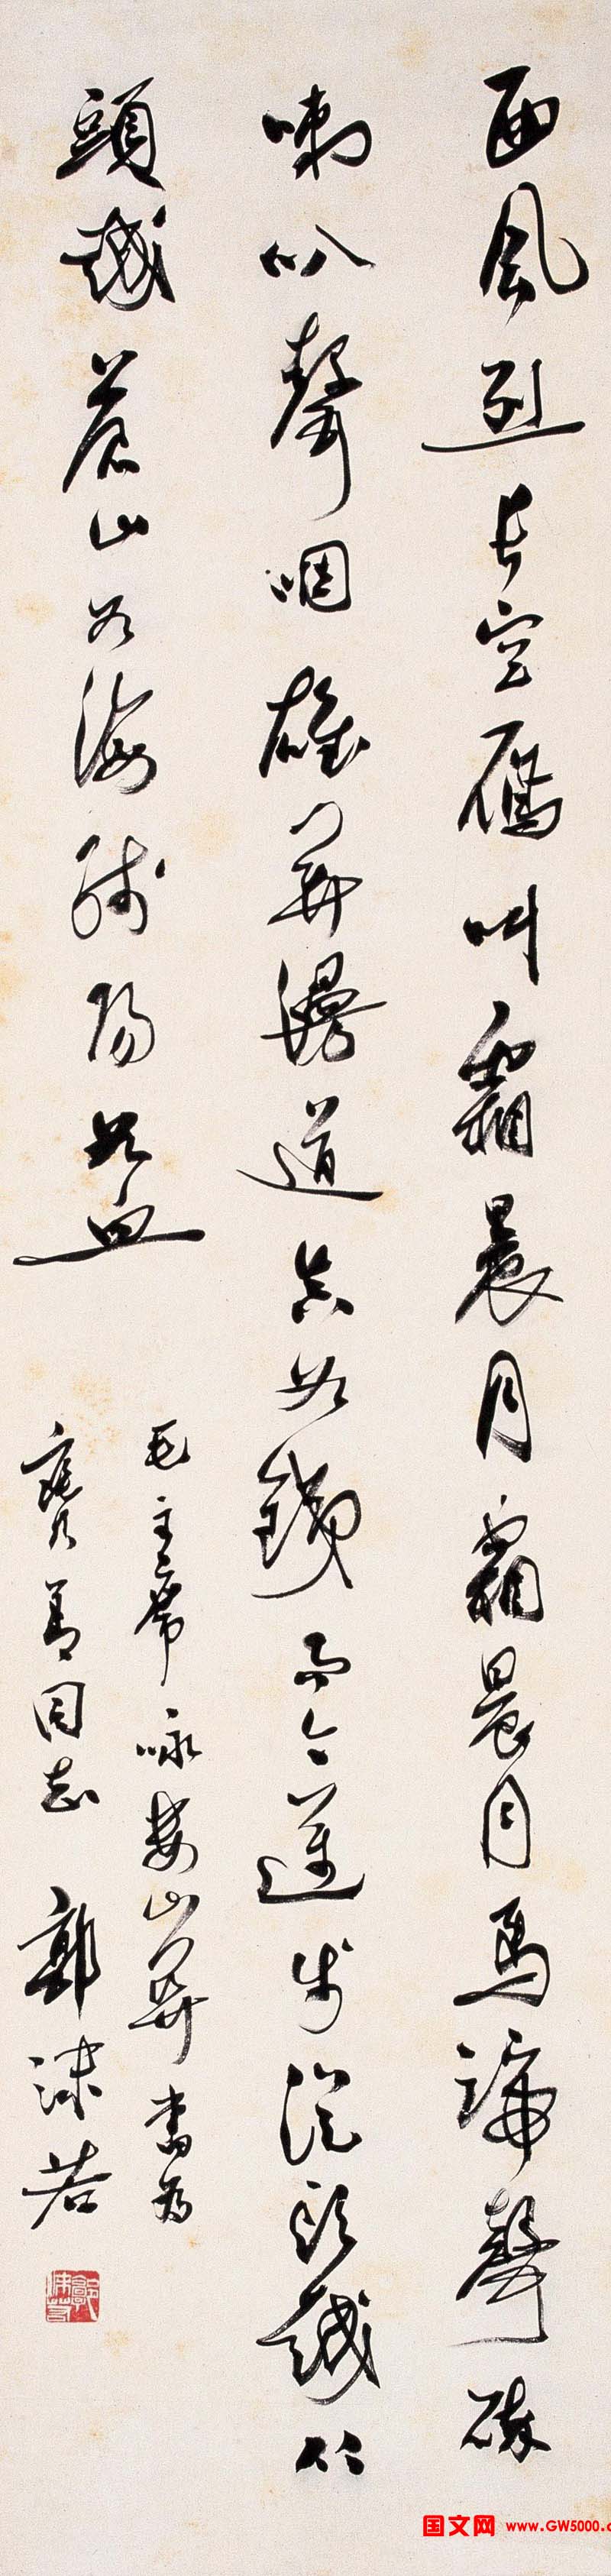 西風烈長空鴈叫霜晨月霜晨月馬蹄聲碎
喇叭聲咽雄關漫道真如鐵而今邁步從頭越从
頭越蒼山如海殘陽如血
毛主席咏婁山關書為
善同志 郭沫若
郭沫若
国文网 www.GW5000.c